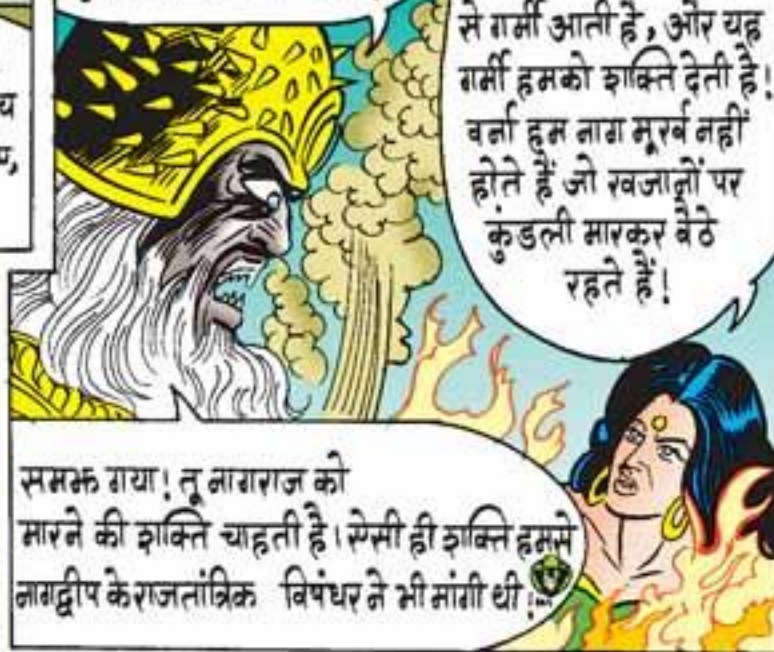 से गर्मी आती है, और यह
गर्मी हमको शक्ति देती है!
वर्ना हम नाग मूर्ख नहीं
होते हैं जो खजानों पर
कुंडली मारकर बैठे
रहते हैं!
समझ गया! तू नागराज को
मारने की शक्ति चाहती है। ऐसी ही शक्ति हमसे
नागद्वीप के राजतांत्रिक विषंधर ने भी मांगी थी!